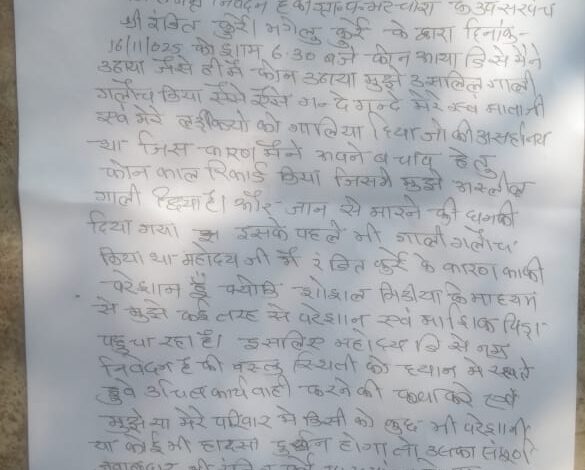 निवेदन है की ग्राम भटचौरा के उपसरपंच
श्री रंजित कुर्रे। भगेलु कुर्रे के द्वारा दिनांक-
16/11/025 को शाम 6.30 बजे फोन आया जिसे मैने
उठाया जैसे ही मैं फोन उठाया मुझे असलिल गाली
गलौच किया ऐसे ऐसे गन्दे गन्दे मेरे एवं माताजी
एवं मेरे लड़कियो को गालिया दिया जो की असहनिय
था जिस कारण मैंने अपने बचाव हेतु
फोन काल रिकार्ड किया जिसमे मुझे अस्लील
गाली दिया है। और जान से मारने की धमकी
दिया गया। इसके पहले भी गाली गलौच
किया था महोदय जी मैं रंजित कुर्रे के कारण काफी
परेशान हुँ क्योकि शोशल मिडीया के माध्यम
से मुझे कई तरह से परेशान एवं मानशिक पिड़ा
पहुचा रहा है। इसलिए महोदय जि से नम्र
निवेदन है की वस्तु स्थिती को ध्यान मे रखते
हुवे उचित कार्यवाही करने की कृपा करे एवं
मुझे या मेरे परिवार मे किसी को कुछ भी परेशानी
या कोई भी हादसा होगा तो उसका संपूर्ण
जवाबदार श्री